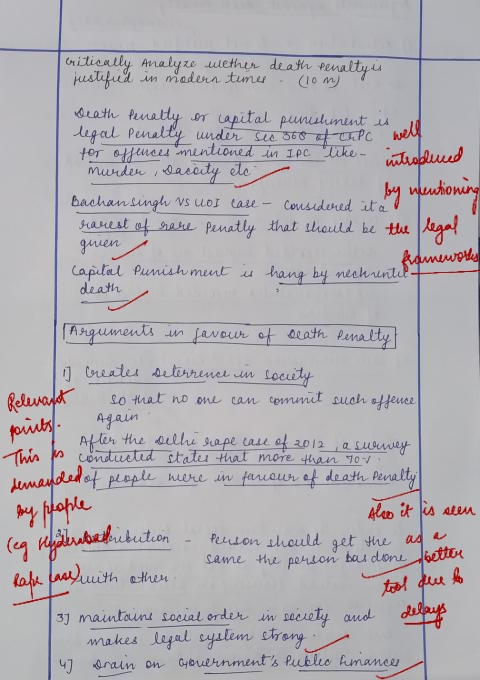 Critically Analyze wether death Penalty is
justified in modern times - (10 m)
Death Penalty or capital punishment is
legal Penalty under Sec 368 of CrPC
for offences mentioned in IPC like -
murder, Dacoity etc.
well
introduced
by mentioning
the legal
frameworks
Bachan Singh VS UOI case - considered it a
rarest of rare Penalty that should be
given
Capital Punishment is hang by neck until
death
Arguments in favour of Death Penalty
1] Creates Deterrence in Society
so that no one can commit such offence
Again.
After the Delhi rape case of 2012, a survey
conducted states that more than 70%
of people were in favour of death Penalty
Relevant
points.
This is
demanded
by people
(eg Hyderabad
Rape case)
Also it is seen
as a
better
tool due to
delays
2] Retribution - Person should get the
same the person has done
with other
3] maintains social order in society and
makes legal system strong.
4] Drain on Government's Public Finances